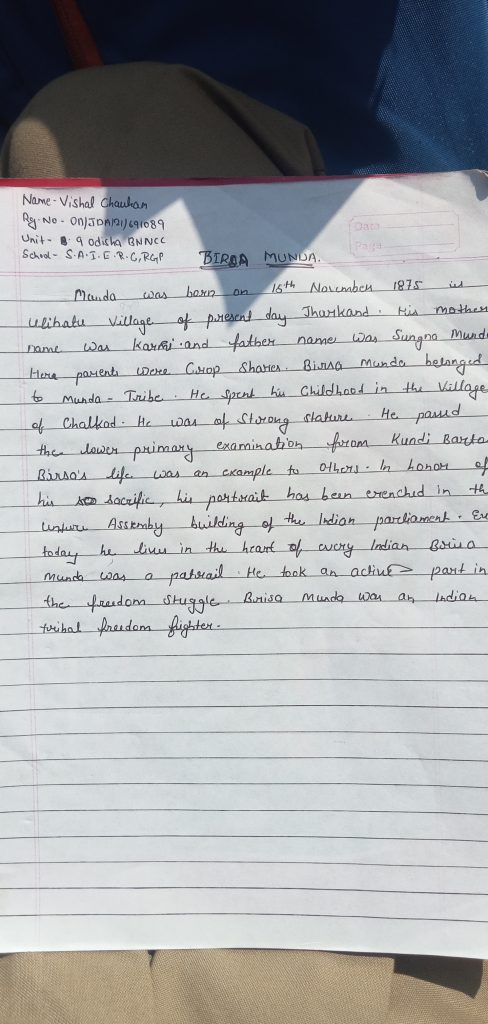 Name- Vishal Chauhan
Reg. No - OD/JDA/21/691089
Unit - 9 Odisha BNNCC
School - S.A.I.E.R.C, RGP
Date
Page
BIRSA MUNDA.
Manda was born on 15th November 1875 in
Ulihatu Village of present day Jharkand. His mother
name was Karmi and father name was Sungna Mund
Here parents were Crop Sharer. Birsa Munda belonged
to Munda - Tribe. He Spent his Childhood in the Village
of Chalkad. He was of Strong Stature. He passed
the lower primary examination from Kundi Barto
Birsa's life was an example to Others. In honor of
his sacrific, his portrait has been erenched in th
Assemby building of the Indian parliament. Ev
today he lives in the heart of every Indian Birsa
Munda was a He took an active part in
the freedom Stuggle. Birsa Munda was an Indian
tribal freedom fighter.